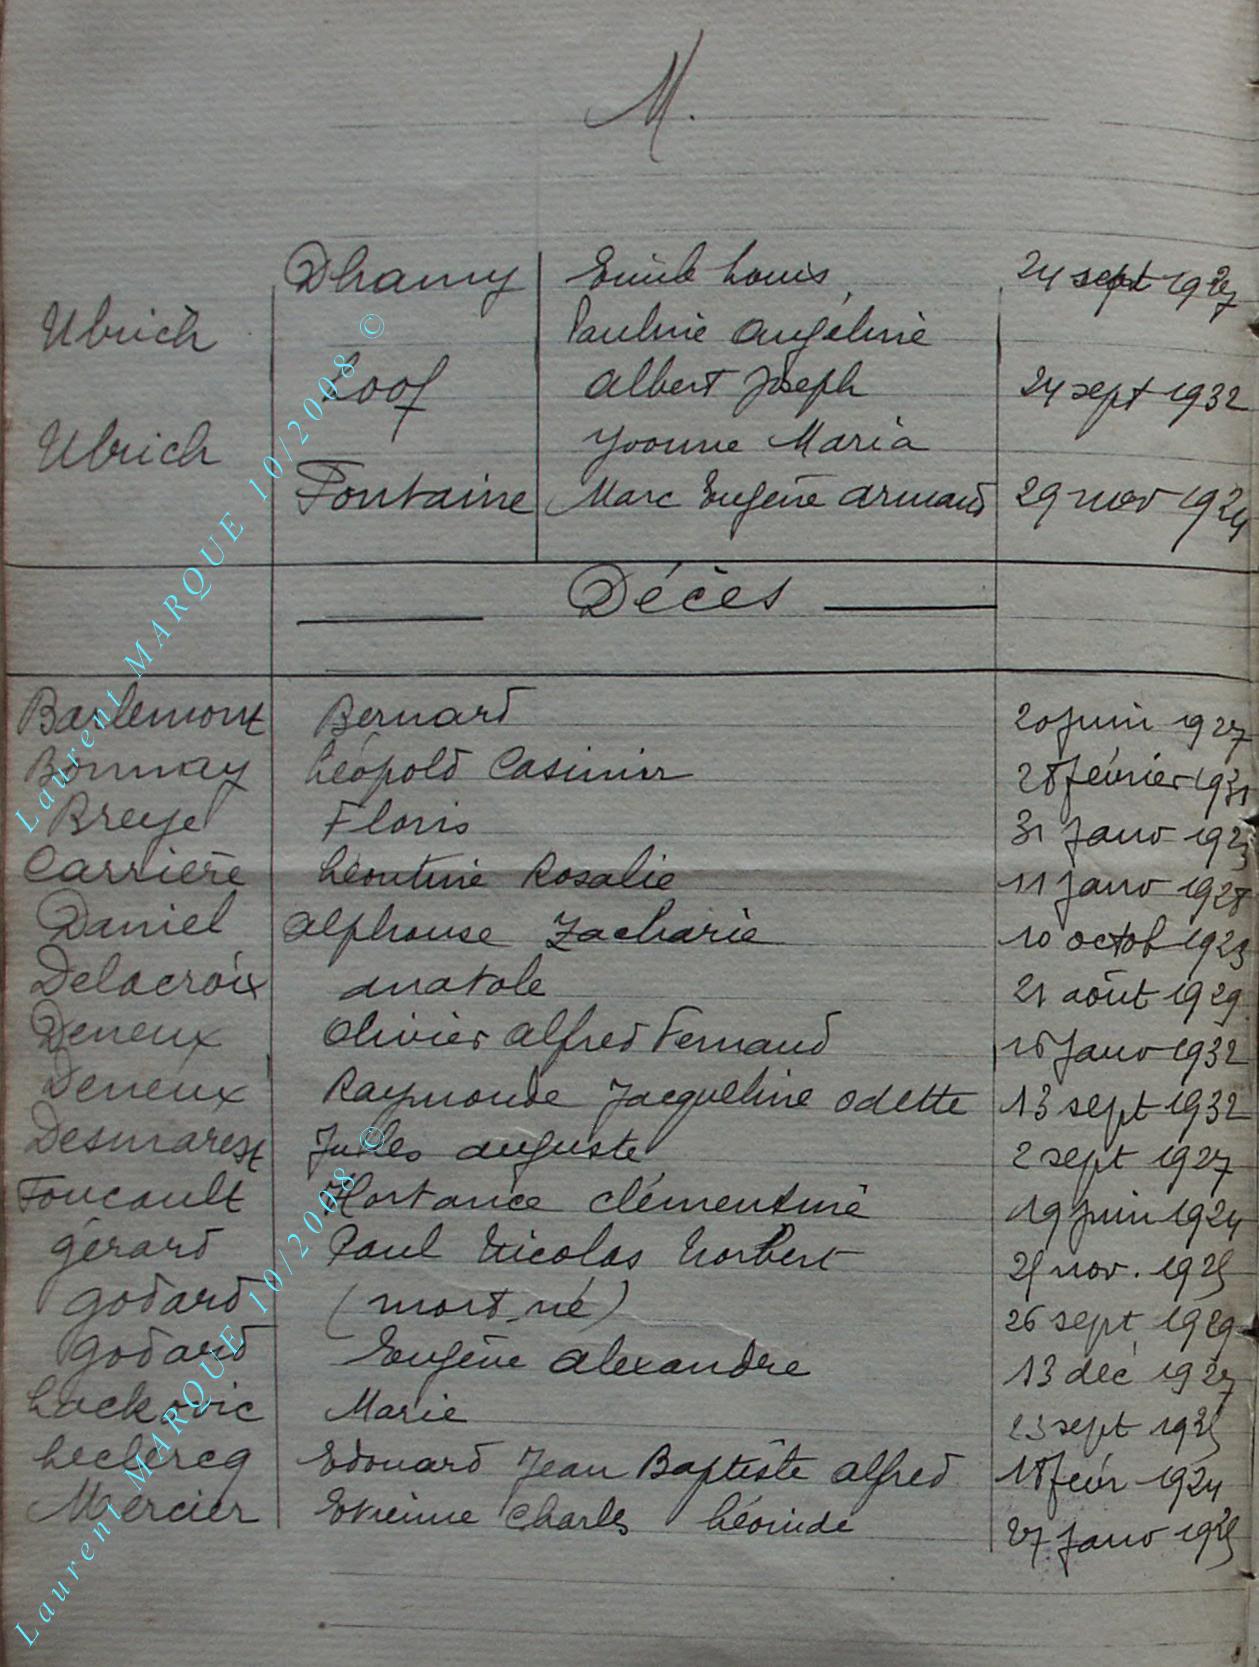 M.
Dhamy Emile Louis, 24 sept 1927
Ulrich Pauline Angéline
Loof Albert Joseph 24 sept 1932
Ulrich Yvonne Maria
Fontaine Marc Eugène Armand 29 nov 1924
Décès
Barlemont Bernard 20 juin 1927
Bonnay Léopold Casimir 28 février 1931
Breye Floris 31 janv 1923
Carrière Léontine Rosalie 11 janv 1928
Daniel Alphonse Zacharie 10 octob 1923
Delacroix Anatole 21 août 1929
Deneux Olivier Alfred Fernand janv 1932
Deneux Raymonde Jacqueline Odette 13 sept 1932
Desmarest Jules Auguste 2 sept 1927
Foucault Hortance Clémentine 19 juin 1924
Gérard Paul Nicolas Norbert nov. 1925
Godard (mort né) 26 sept 1929
Godard Eugène Alexandre 13 déc 1927
Lackovic Marie 23 sept 1925
Leclercq Edouard Jean Baptiste Alfred 18 fevr 1924
Mercier Etienne Charles Léonide 27 janv 1925
Laurent MARQUE 10/2008 ©
Laurent MARQUE 10/2008 ©